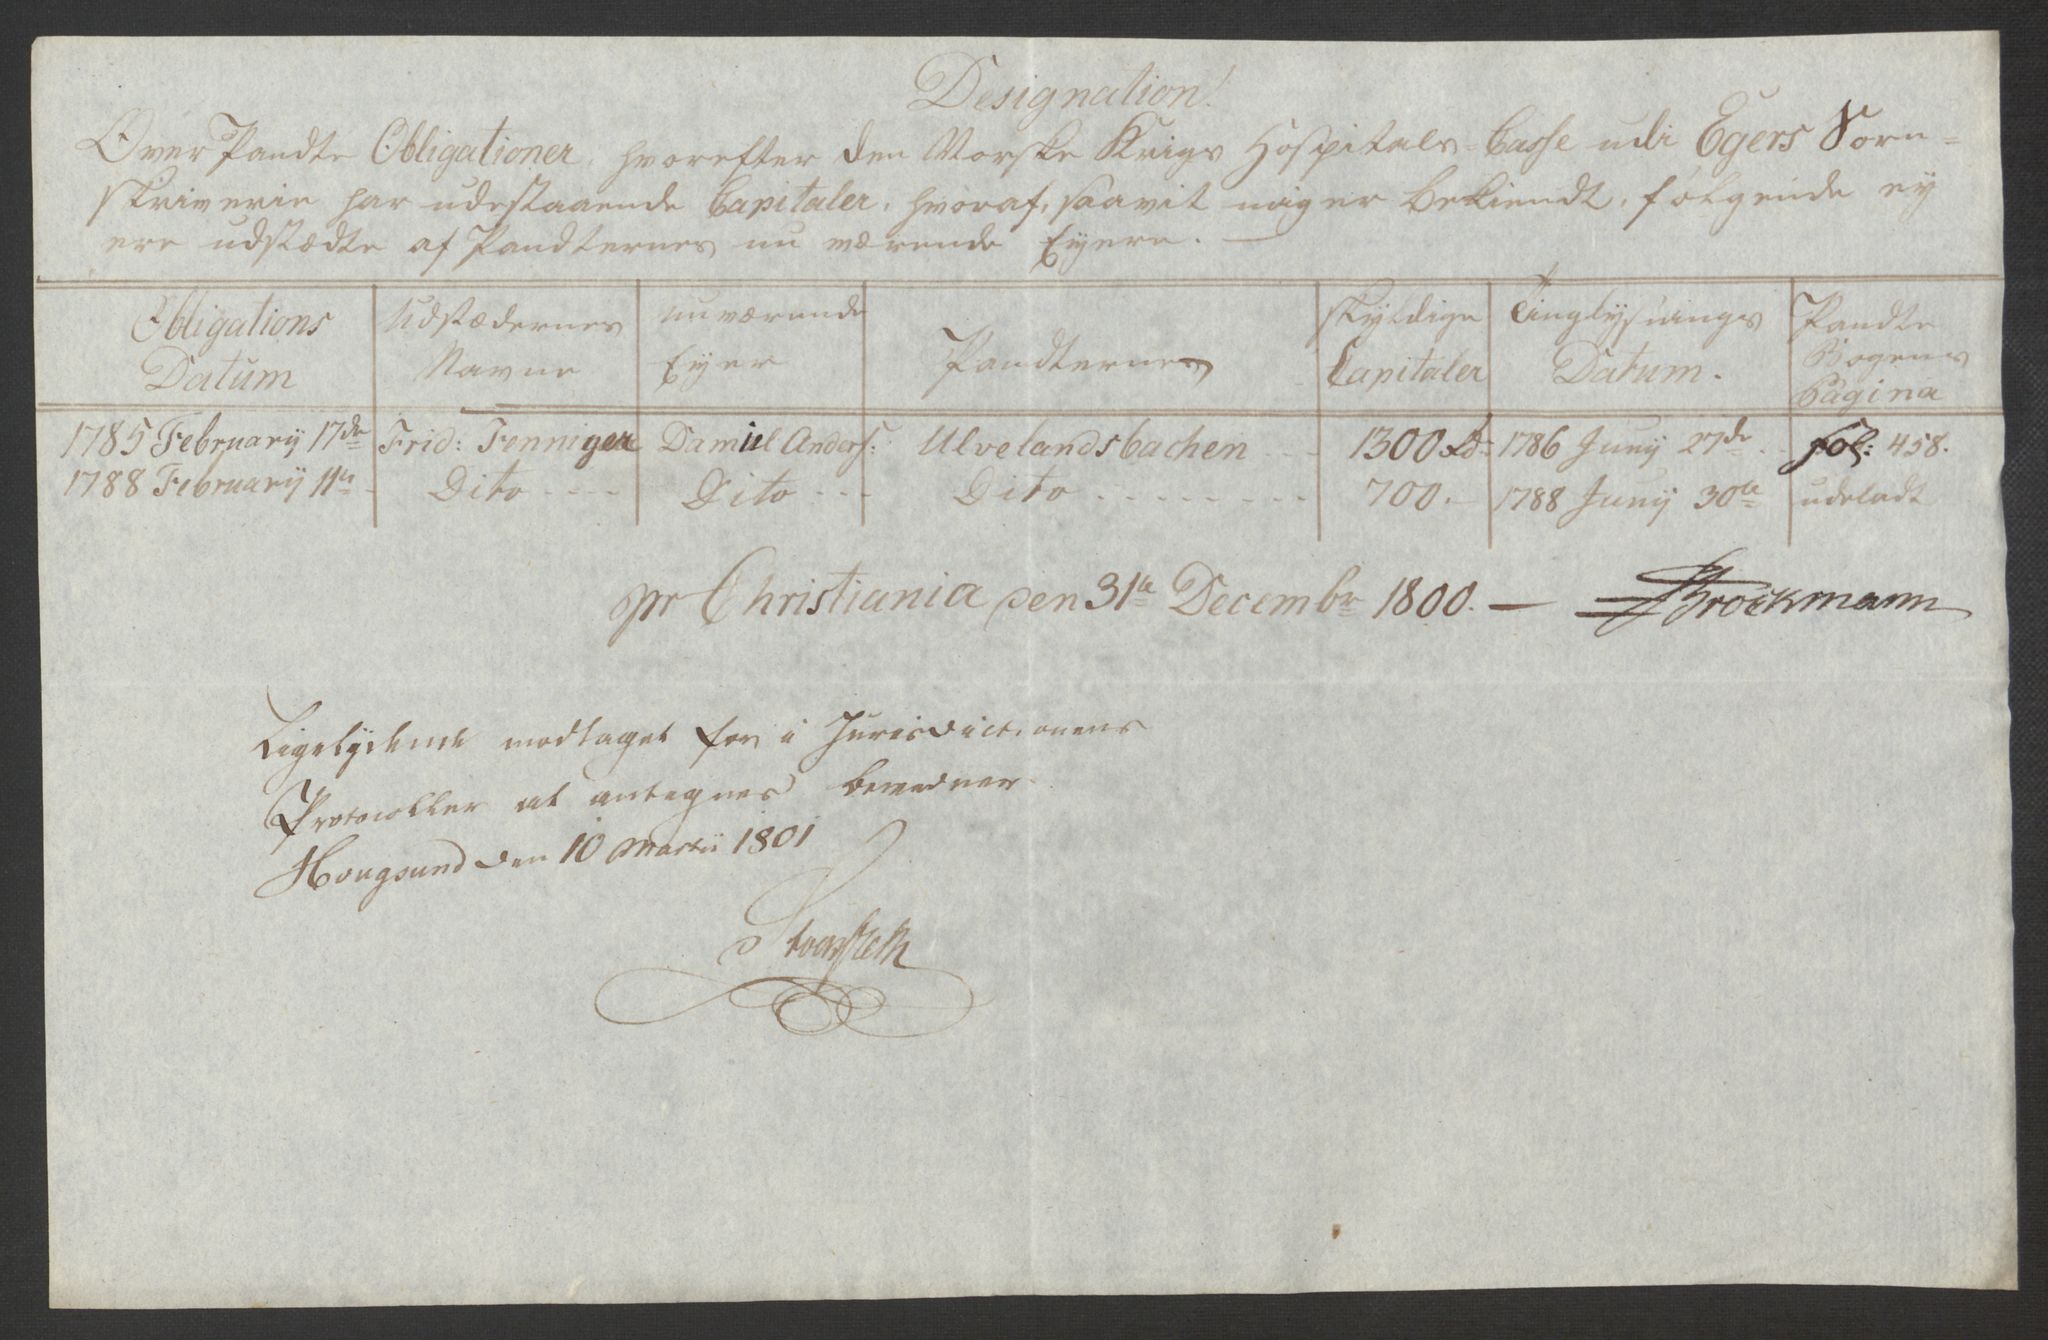 Designation!
Over Pandte Obligationer, hvorefter den Norske Krigs Hospitals-Casse udi Egers Sorn=
skriverie har udestaaende Capitaler, hvoraf, saavit mig er bekiendt, følgende ey
ere udstædte af Pandternes nu værende Eyere. —
Obligations Datum | Udstædernes Navne | nuværende Eyer | Pandternes | skyldige Capitaler | Tinglysnings Datum. | Pandte Bogens Pagina
1785 February 17de | Frid: Fenniger | Daniel Anders: | Ulvelandsbachen | 1300 Rd | 1786 Junij 27de | Fol: 458.
1788 February 11te | Dito | Dito | Dito | 700. | 1788 Junij 30te | udeladt
pr Christiania den 31te Decembr 1800. — Brockmann
Ligelydende modtaget for i Jurisdictionens
Protocoller at antegnes bevidner
Hougsund den 10 Martii 1801